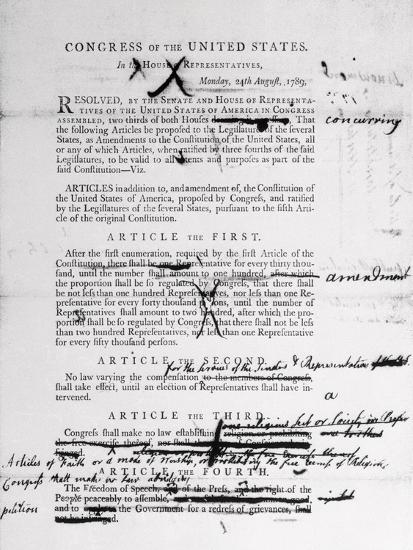 CONGRESS OF THE UNITED STATES.
In the House of Representatives,
Monday, 24th August, 1789,
RESOLVED, BY THE SENATE AND HOUSE OF REPRESENTA-
TIVES OF THE UNITED STATES OF AMERICA IN CONGRESS
ASSEMBLED, two thirds of both Houses concurring That
the following Articles be proposed to the Legislatures of the several
States, as Amendments to the Constitution of the United States, all
or any of which Articles, when ratified by three fourths of the said
Legislatures, to be valid to all intents and purposes as part of the
said Constitution—Viz.
ARTICLES in addition to, and amendment of, the Constitution of
the United States of America, proposed by Congress, and ratified
by the Legislatures of the several States, pursuant to the fifth Arti-
cle of the original Constitution.
ARTICLE THE FIRST.
After the first enumeration, required by the first Article of the
Constitution, there shall be one Representative for every thirty thou-
sand, until the number shall amount to one hundred, after which amendment
the proportion shall be so regulated by Congress, that there shall
be not less than one hundred Representatives, nor less than one Re-
presentative for every forty thousand persons, until the number of
Representatives shall amount to two hundred, after which the pro-
portion shall be so regulated by Congress, that there shall not be less
than two hundred Representatives, nor less than one Representative
for every fifty thousand persons.
ARTICLE THE SECOND.
for the services of the Senators & Representatives
No law varying the compensation to the members of Congress,
shall take effect, until an election of Representatives shall have in-
tervened. a
ARTICLE THE THIRD.
one religious Sect or Society in
Congress shall make no law establishing religion or prohibiting
the free exercise thereof, nor shall
Articles of faith or a mode of Worship, or prohibiting the free exercise of Religion,
ARTICLE THE FOURTH.
Congress shall make no law abridging
The Freedom of Speech, of the Press, and the right of the
People peaceably to assemble,
petition and to the Government for a redress of grievances, shall
not be infringed.